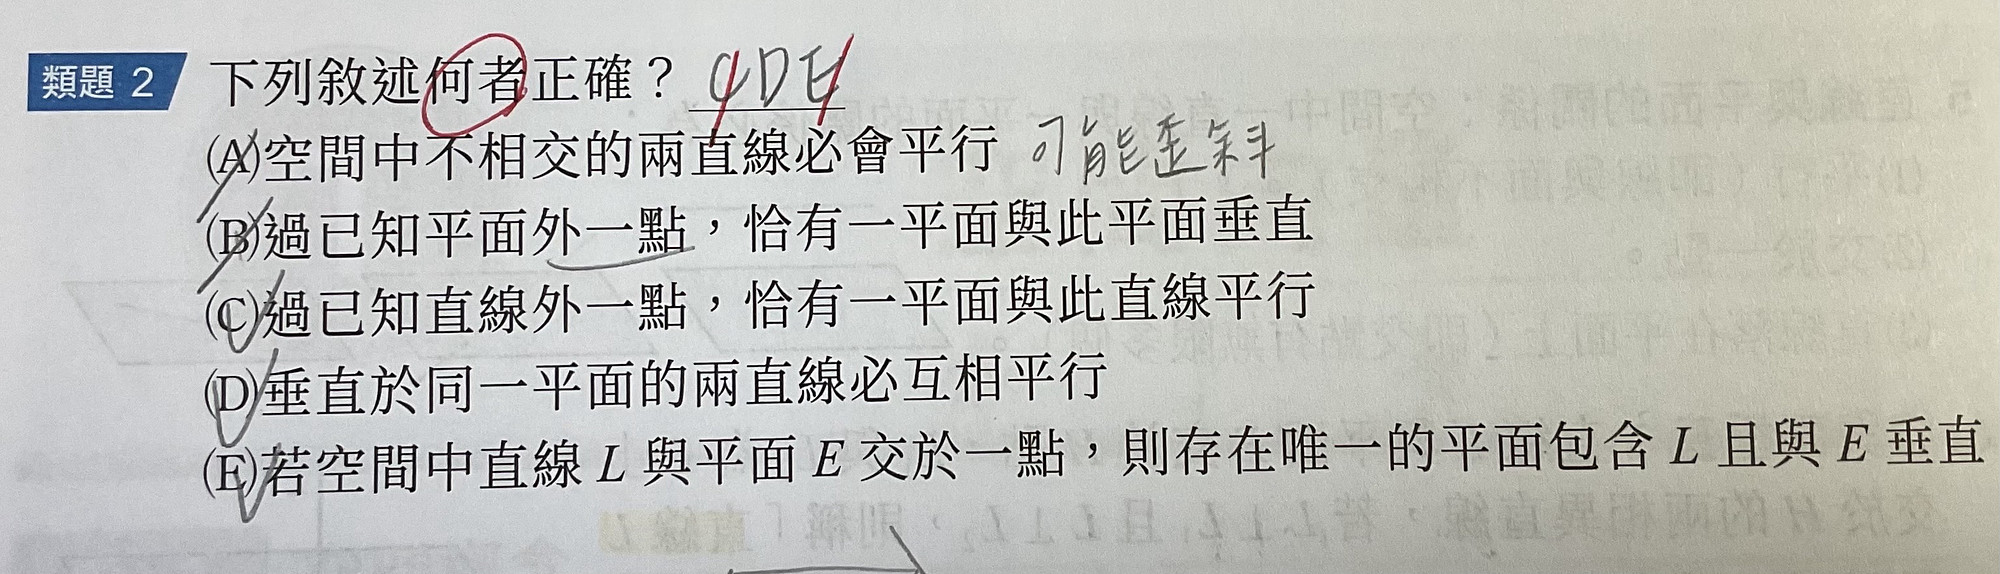 類題 2 下列敘述何者正確？ CDE
(A)空間中不相交的兩直線必會平行 可能歪斜
(B)過已知平面外一點，恰有一平面與此平面垂直
(C)過已知直線外一點，恰有一平面與此直線平行
(D)垂直於同一平面的兩直線必互相平行
(E)若空間中直線 L 與平面 E 交於一點，則存在唯一的平面包含 L 且與 E 垂直